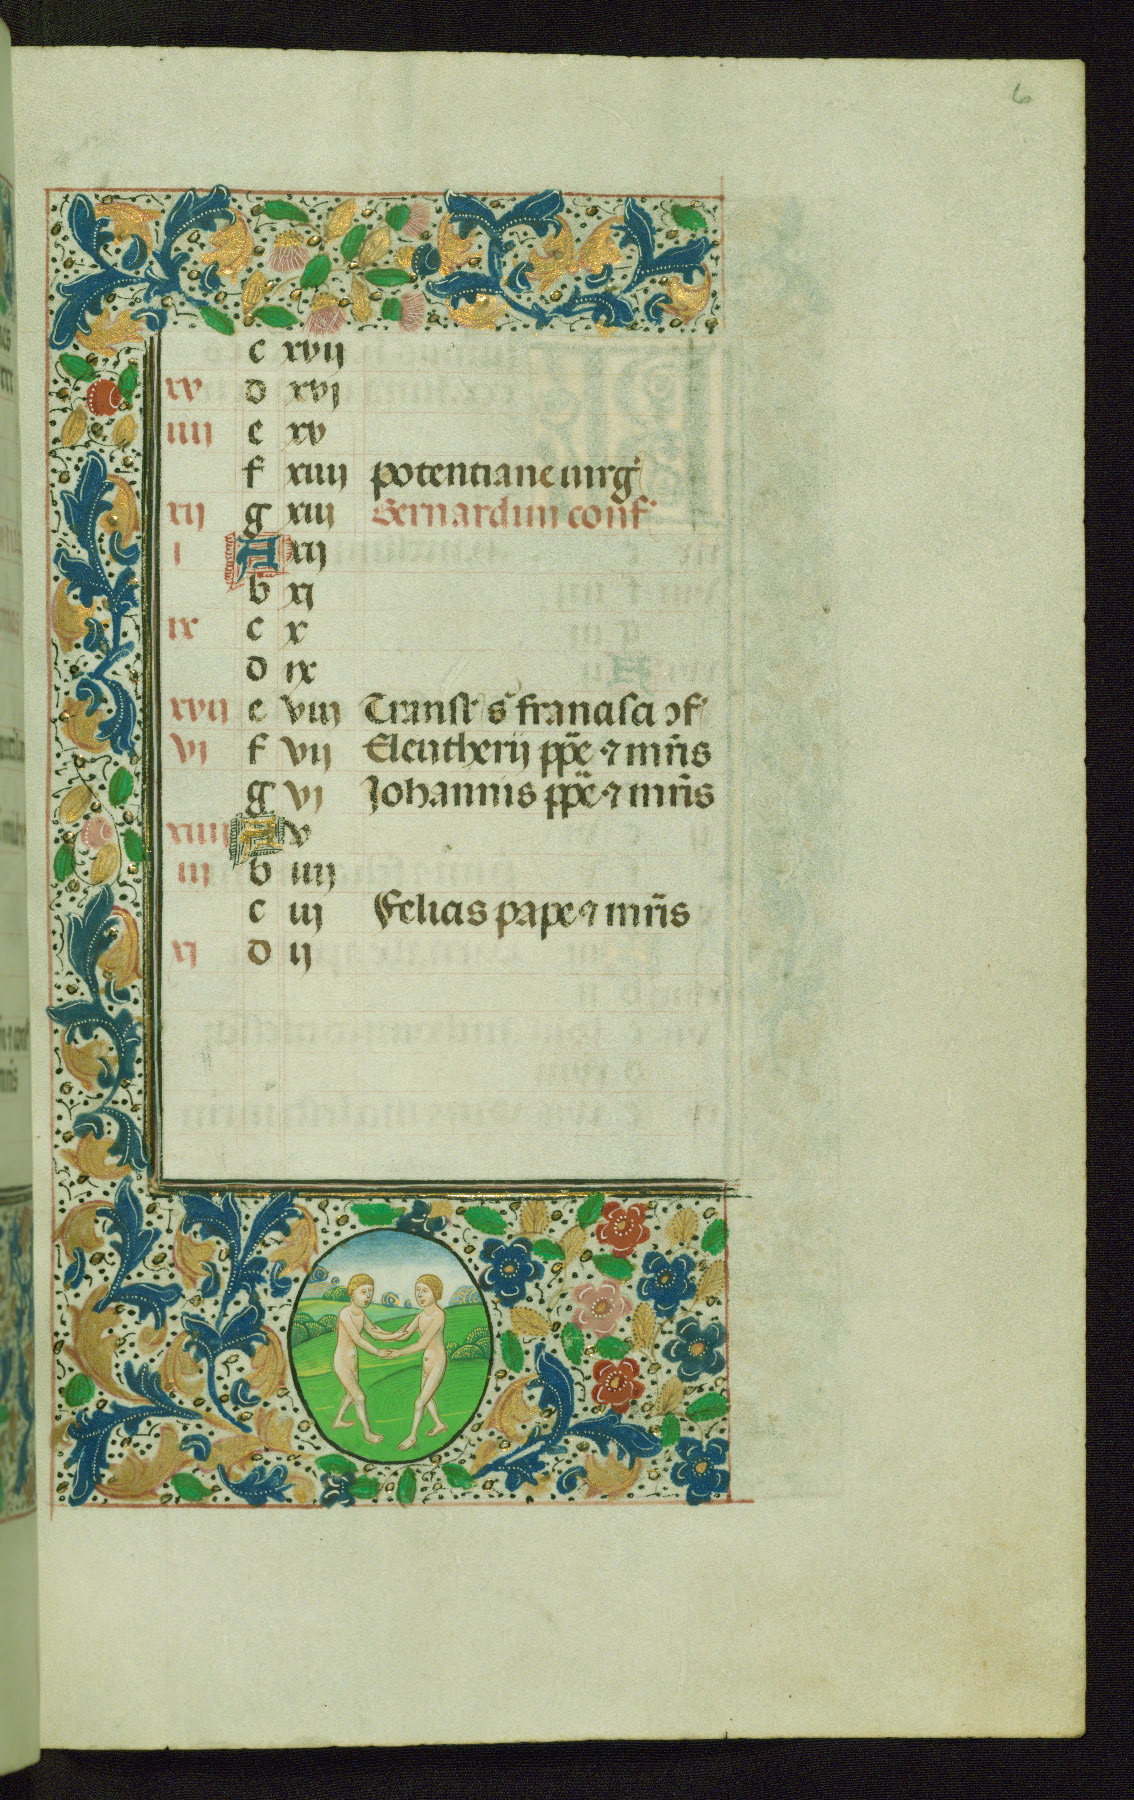 6
c xvij
xv d xvj
iiij e xv
f xiiij potentiane uirg
xij g xiij Bernardini conf
i A xij
b xj
ix c x
d ix
xvij e viij Transl s francisci ɔf
vi f vij Eleutherij ppe ⁊ mris
g vj Johannis ppe ⁊ mris
xiiij A v
iij b iiij
c iij Felicis pape ⁊ mris
xj d ij